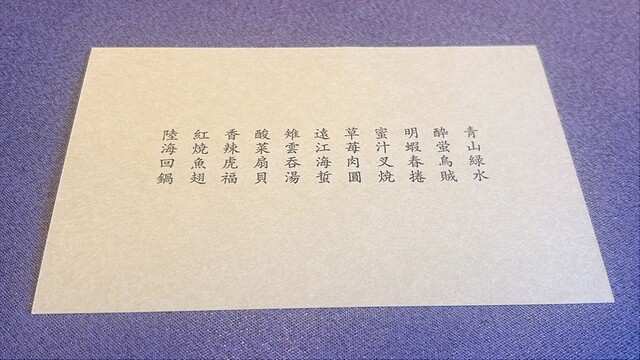 青山綠水
醉螢烏賊
明蝦春捲
蜜汁叉燒
草苺肉圓
遠江海蜇
雉雲吞湯
酸菜扇貝
香辣虎福
紅燒魚翅
陸海回鍋